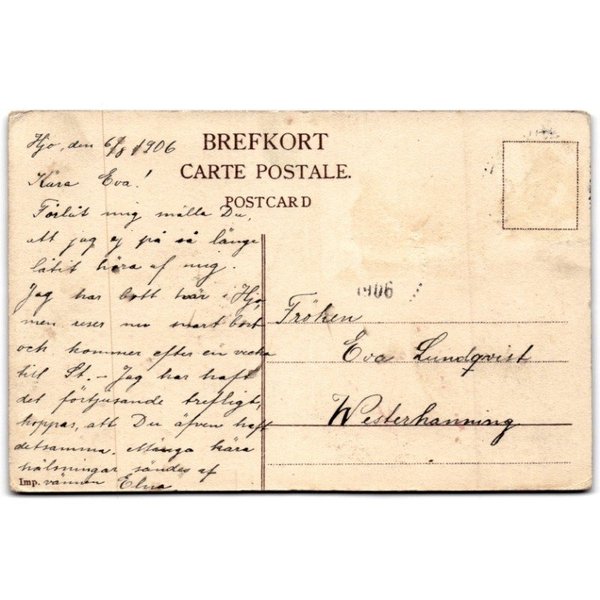 Hjo, den 6/8 1906
Kära Eva!
Förlåt mig målla Du,
att jag ej på så länge
låtit höra af mig.
Jag har bott här i Hjo,
men reser nu snart bort
och kommer efter en vecka
till St. – Jag har haft
det förtjusande trefligt,
hoppas, att Du äfven haft
detsamma. Många kära
hälsningar sändes af
vännen Elna
Imp.
BREFKORT
CARTE POSTALE.
POSTCARD
1906
Fröken
Eva Lundqvist
Westerhanning